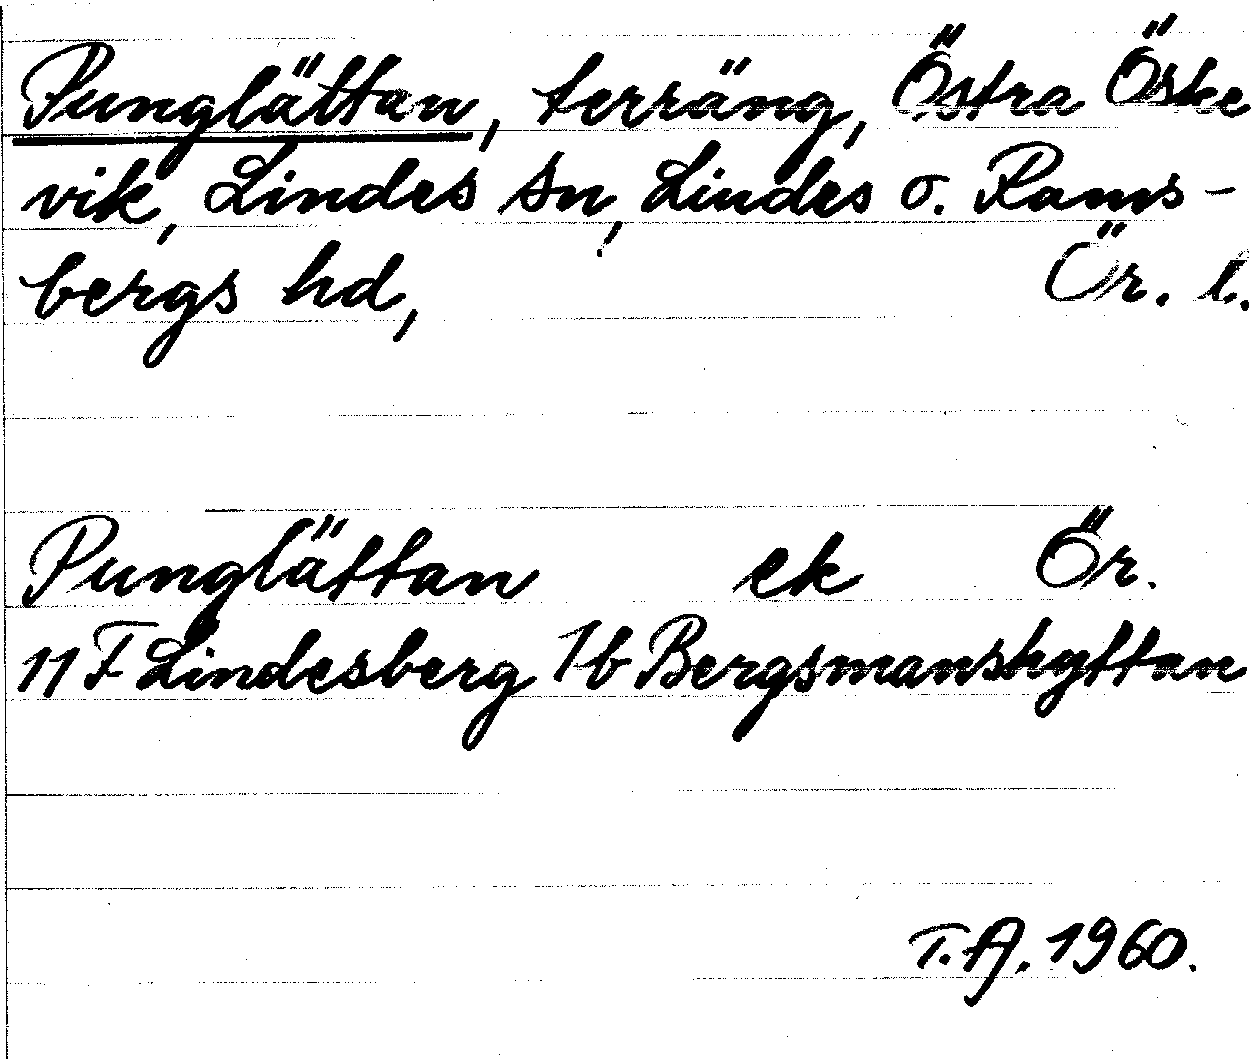 Punglättan, terräng, Östra Öske
vik, Lindes sn, Lindes o. Rams-
bergs hd, Ör. l.
Punglättan ek Ör.
11 F Lindesberg 7b Bergsmanshyttan
T.A. 1960.